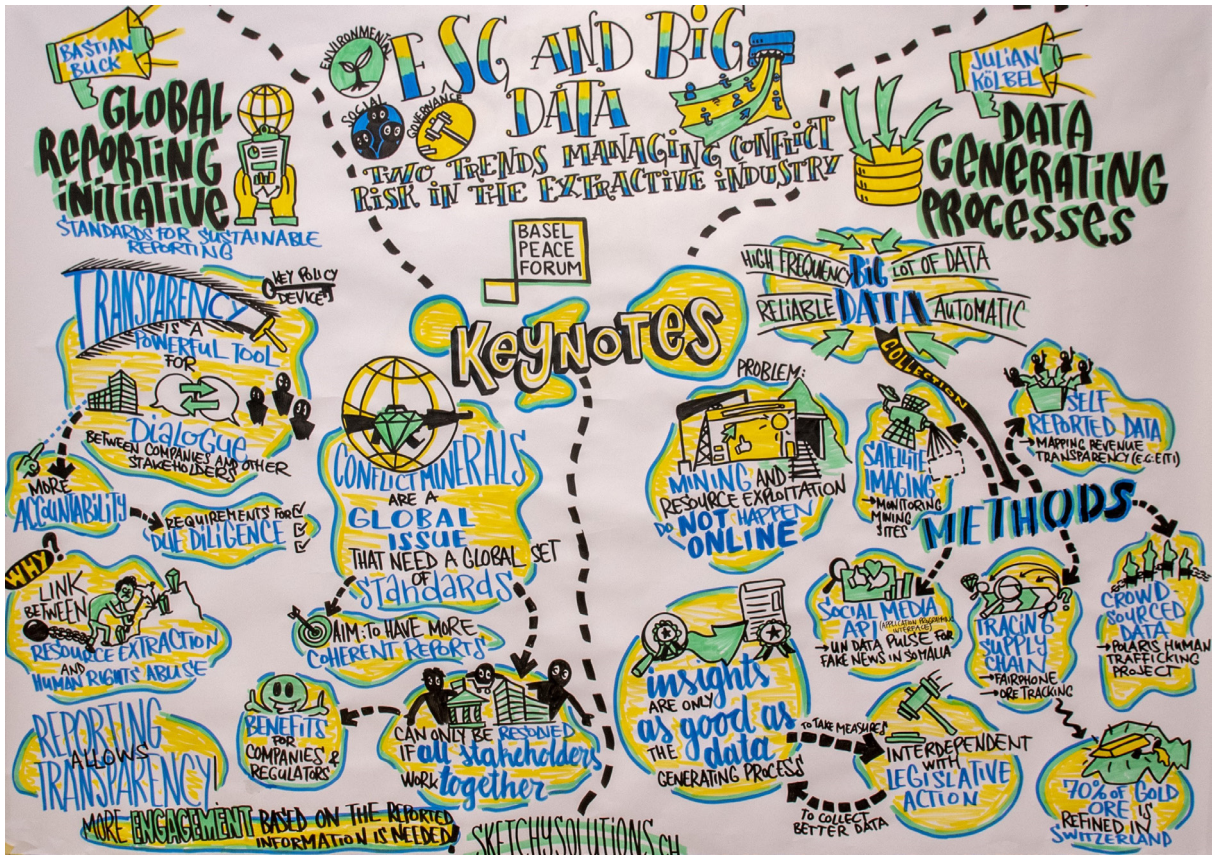 BASTIAN
BUCK
GLOBAL
REPORTING
INITIATIVE
STANDARDS FOR SUSTAINABLE
REPORTING
ENVIRONMENTAL
SOCIAL
GOVERNANCE
ESG AND BIG
DATA
TWO TRENDS MANAGING CONFLICT
RISK IN THE EXTRACTIVE INDUSTRY
JULIAN
KÖLBEL
DATA
GENERATING
PROCESSES
BASEL
PEACE
FORUM
KEYNOTES
TRANSPARENCY
KEY POLICY
DEVICE
IS A
POWERFUL TOOL
FOR
DIALOGUE
BETWEEN COMPANIES AND OTHER
STAKEHOLDERS
MORE
ACCOUNTABILITY
REQUIREMENTS FOR
DUE DILIGENCE
WHY?
LINK
BETWEEN
RESOURCE EXTRACTION
AND
HUMAN RIGHTS ABUSE
REPORTING
ALLOWS
TRANSPARENCY!
CONFLICT MINERALS
ARE A
GLOBAL
ISSUE
THAT NEED A GLOBAL SET
OF
STANDARDS
AIM: TO HAVE MORE
COHERENT REPORTS
CAN ONLY BE RESOLVED
IF all stakeholders
WORK together
BENEFITS
FOR
COMPANIES &
REGULATORS
MORE ENGAGEMENT BASED ON THE REPORTED
INFORMATION IS NEEDED!
SKETCHYSOLUTIONS.CH
HIGH FREQUENCY
BIG
LOT OF DATA
RELIABLE
DATA
AUTOMATIC
COLLECTION
PROBLEM:
MINING AND
RESOURCE EXPLOITATION
DO NOT HAPPEN
ONLINE
METHODS
SATELLITE
IMAGING
→MONITORING
MINING
SITES
SELF
REPORTED DATA
→MAPPING REVENUE
TRANSPARENCY (E.G. EITI)
SOCIAL MEDIA
API (APPLICATION PROGRAMMING
INTERFACES)
→UN DATA PULSE FOR
FAKE NEWS IN SOMALIA
TRACING
SUPPLY
CHAIN
→FAIRPHONE
→ORE TRACKING
CROWD
SOURCED
DATA
→POLARIS HUMAN
TRAFFICKING
PROJECT
insights
ARE ONLY
as good as
THE data
GENERATING PROCESS
TO TAKE MEASURES
INTERDEPENDENT
WITH
LEGISLATIVE
ACTION
TO COLLECT
BETTER DATA
70% OF GOLD
ORE IS
REFINED IN
SWITZERLAND